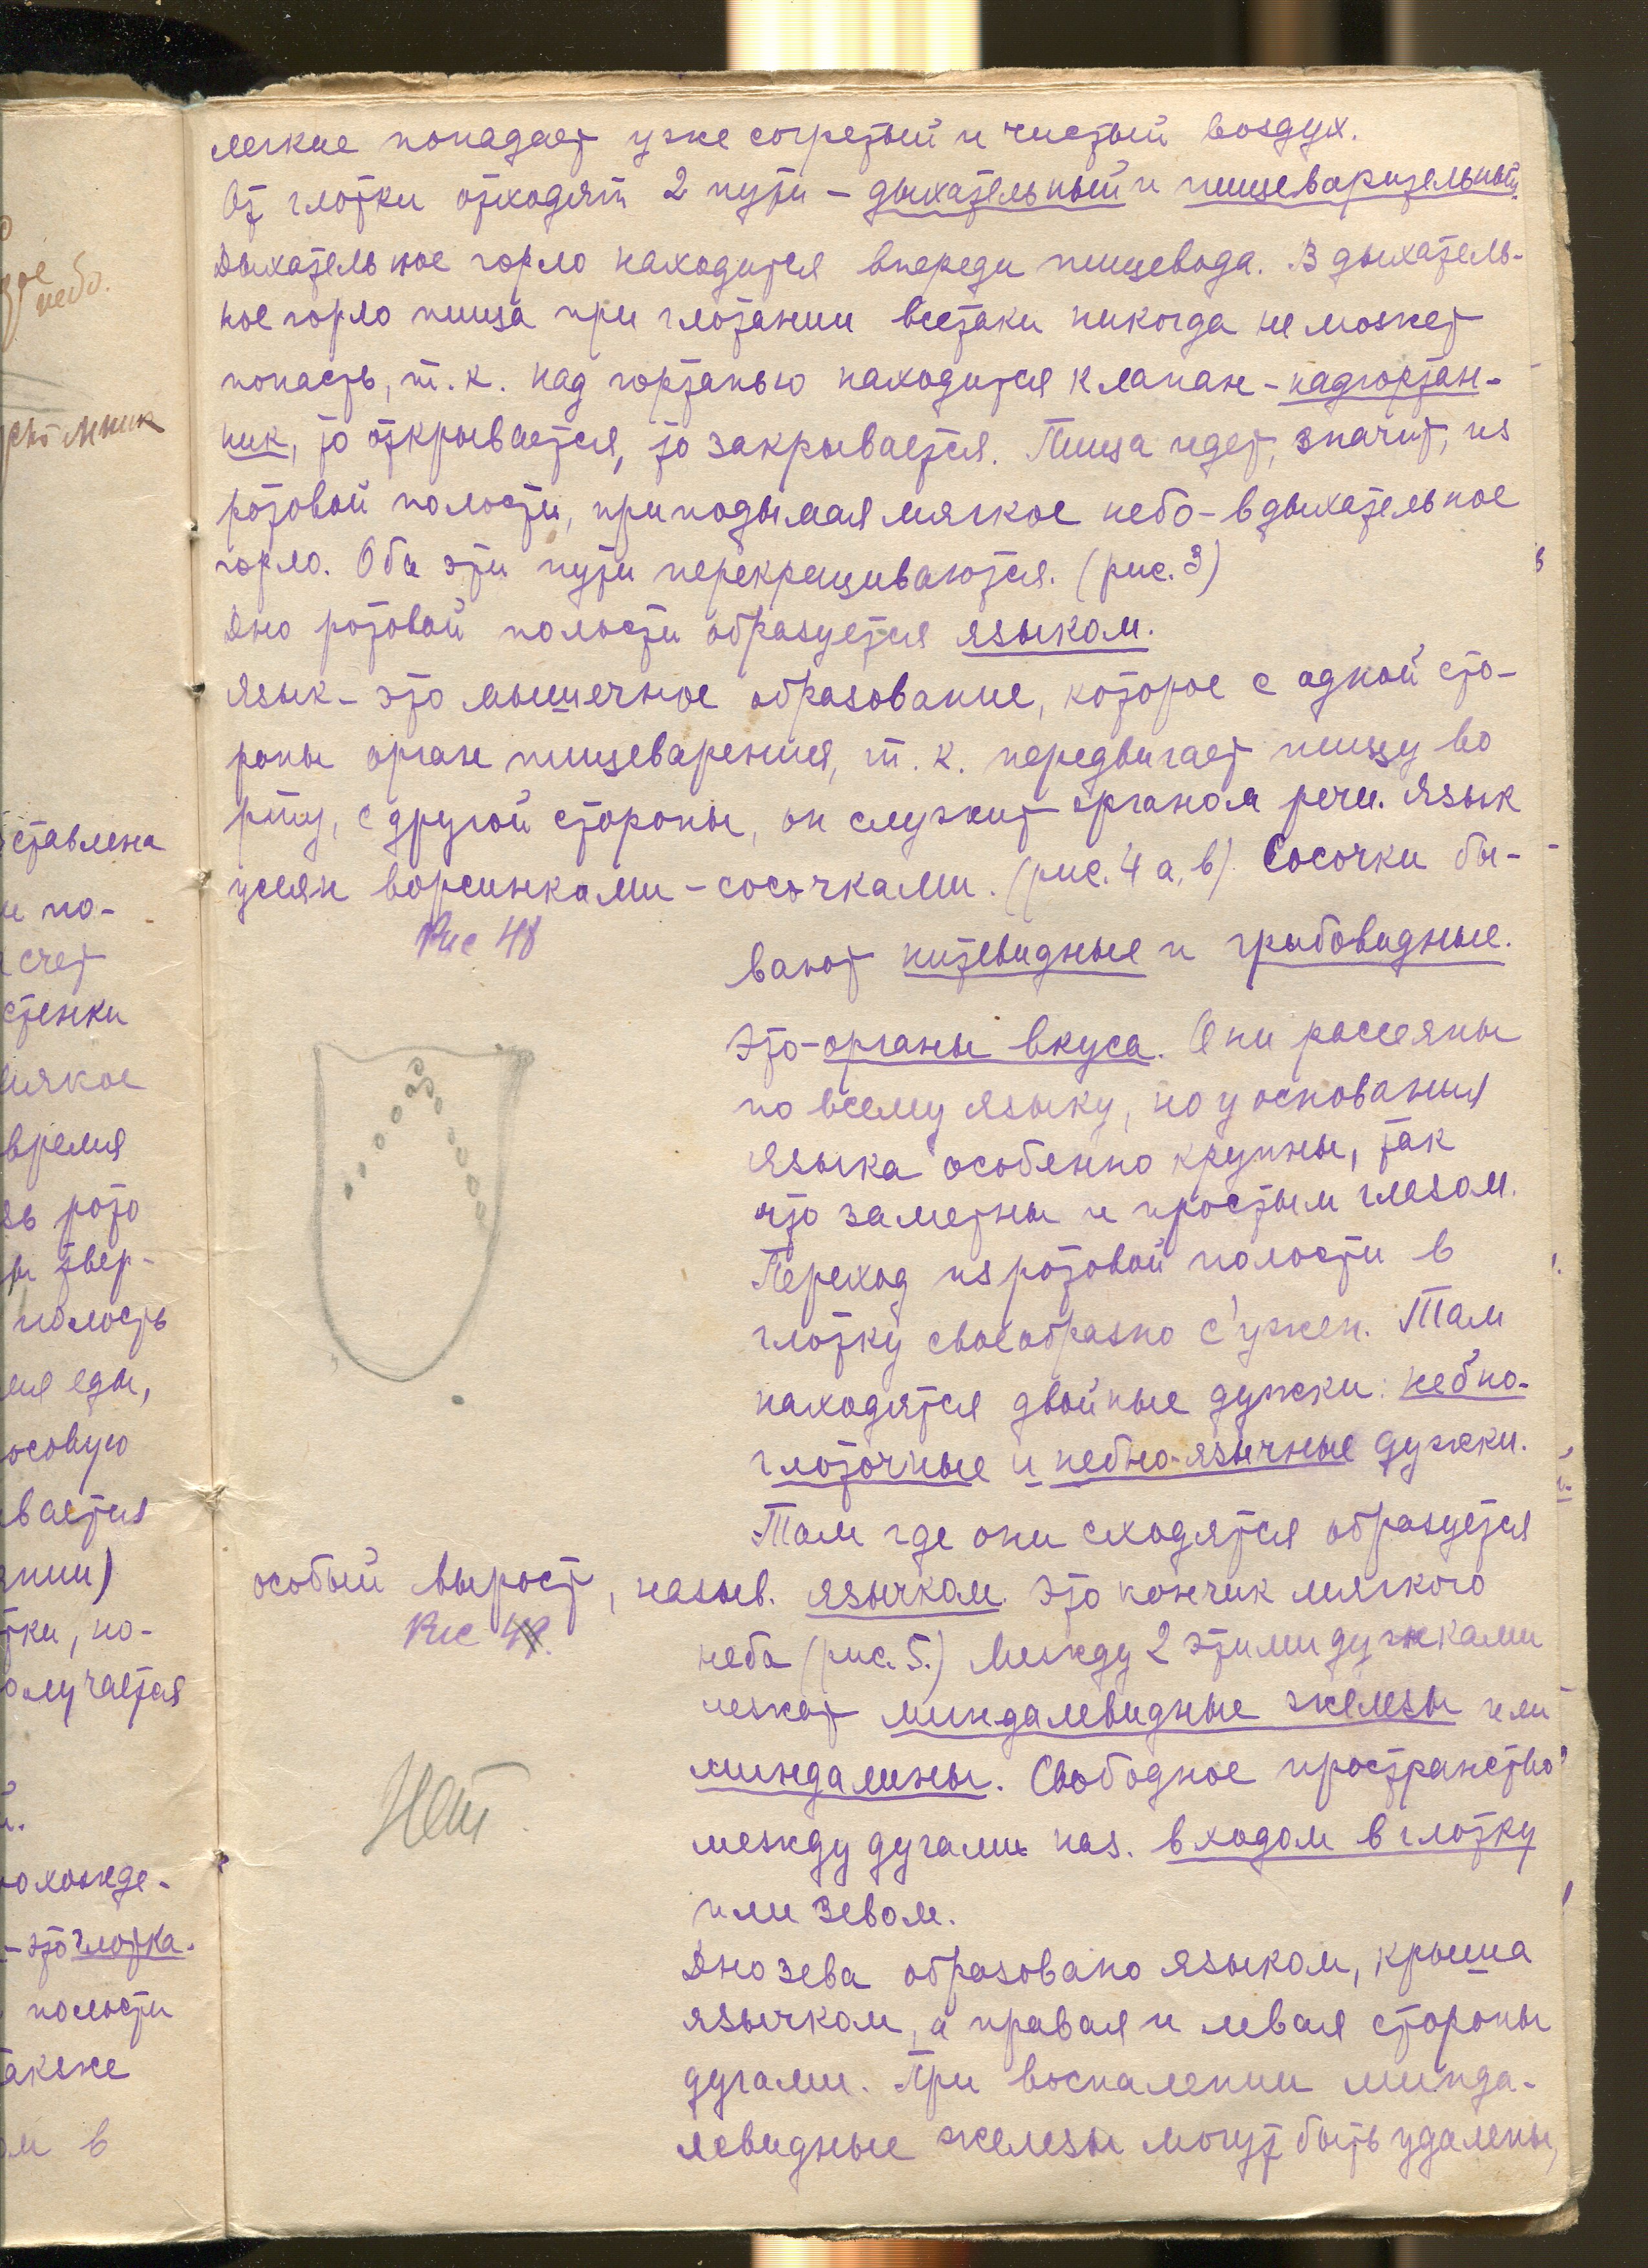 легкие попадает уже согретый и чистый воздух.
От глотки отходят 2 пути – дыхательный и пищеварительный.
Дыхательное горло находится впереди пищевода. В дыхатель-
ное горло пища при глотании всетаки никогда не может
попасть, т. к. над гортанью находится клапан – надгортан-
ник, то открывается, то закрывается. Пища идет, значит, из
ротовой полости, приподымая мягкое небо – в дыхательное
горло. Оба эти пути перекрещиваются. (рис. 3)
Дно ротовой полости образуется языком.
Язык – это мышечное образование, которое с одной сто-
роны орган пищеварения, т. к. передвигает пищу во
рту, с другой стороны, он служит органом речи. Язык
усеян ворсинками – сосочками. (рис. 4 а, в). Сосочки бы-
Рис 4
вают нитевидные и грибовидные.
Это – органы вкуса. Они рассеяны
по всему языку, но у основания
языка особенно крупны, так
что заметны и простым глазом.
Переход из ротовой полости в
глотку своеобразно с'ужен. Там
находятся двойные дужки: небно-
глоточные и небно-язычные дужки.
Там где они сходятся образуется
особый вырост, назыв. язычком. Это кончик мягкого
Рис 4
неба (рис. 5.) Между 2 этими дужками
лежат миндалевидные железы или
миндалины. Свободное пространство
между дугами наз. входом в глотку
или зевом.
Нет.
Дно зева образовано языком, крыша
язычком, а правая и левая стороны
дугами. При воспалении минда-
левидные железы могут быть удалены,
небо.
ставлена
и по-
счет
стенки
мягкое
время
рото
твер-
полость
еды,
осовую
вается
тки, по-
олучается
охожде-
– это глотка.
полости
акже
в